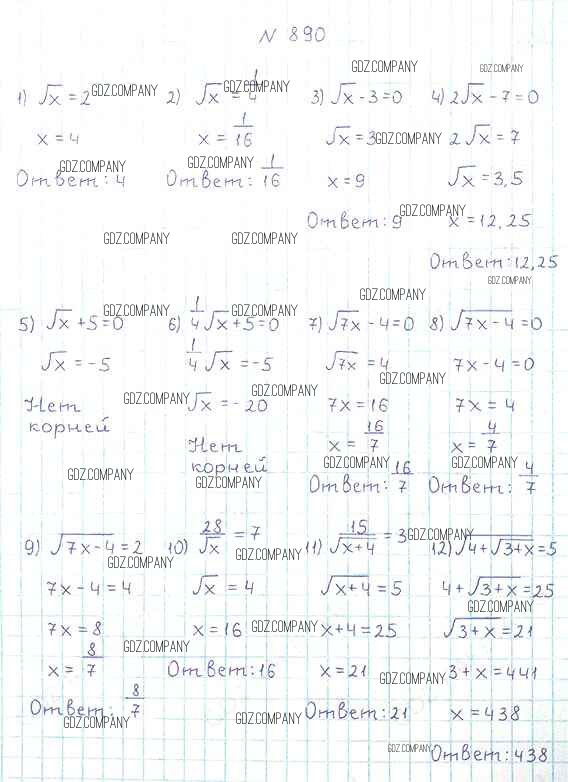 N 890
1) √x = 2
x = 4
Ответ: 4
2) √x = 1/4
x = 1/16
Ответ: 1/16
3) √x - 3 = 0
√x = 3
x = 9
Ответ: 9
4) 2√x - 7 = 0
2√x = 7
√x = 3,5
x = 12,25
Ответ: 12,25
5) √x + 5 = 0
√x = -5
Нет
корней
6) 1/4 √x + 5 = 0
1/4 √x = -5
√x = -20
Нет
корней
7) √7x - 4 = 0
√7x = 4
7x = 16
x = 16/7
Ответ: 16/7
8) √(7x - 4) = 0
7x - 4 = 0
7x = 4
x = 4/7
Ответ: 4/7
9) √(7x - 4) = 2
7x - 4 = 4
7x = 8
x = 8/7
Ответ: 8/7
10) 28/√x = 7
√x = 4
x = 16
Ответ: 16
11) 15/√(x+4) = 3
√(x+4) = 5
x + 4 = 25
x = 21
Ответ: 21
12) √(4 + √(3+x)) = 5
4 + √(3+x) = 25
√(3+x) = 21
3 + x = 441
x = 438
Ответ: 438
GDZ.COMPANY